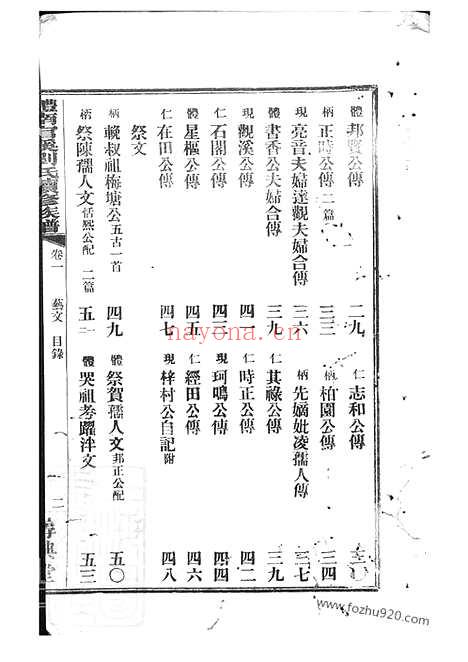 體 邦賢公傳 二九 仁 志和公傳 三〇
柄 正時公傳 二篇 三三 柄 柏園公傳 三四
現 亮音夫婦達觀夫婦合傳 三六 柄 先嫡妣凌孺人傳 三七
體 書香公夫婦合傳 三九 仁 其祿公傳 三九
現 觀溪公傳 四一 仁 時正公傳 四二
仁 石閣公傳 四三 現 珂鳴公傳 四四
體 星樞公傳 四五 仁 經田公傳 四六
仁 在田公傳 四七 現 梓村公自記 附 四八
祭文
柄 輓叔祖梅塘公 五古一首 四九 體 祭賀孺人文 邦正公配 五〇
柄 祭陳孺人文 恬熙公配 二篇 五一 體 哭祖考躍泮文 五三
劉氏續修族譜 卷一 藝文 目錄 二
nayona.cn
www.fozhu920.com